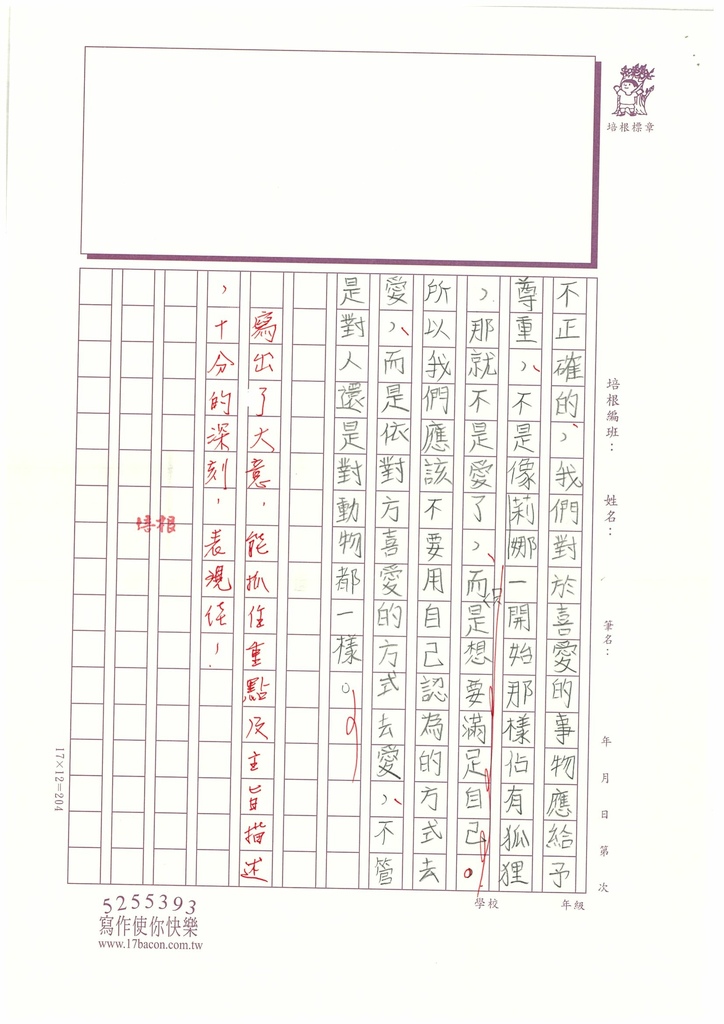 培根標章
培根編班：
姓名：
筆名：
年月日第次
不正確的，我們對於喜愛的事物應給予
尊重，不是像莉娜一開始那樣佔有狐狸
，那就不是愛了，而是想要滿足自己。
只
所以我們應該不要用自己認為的方式去
愛，而是依對方喜愛的方式去愛，不管
是對人還是對動物都一樣。
寫出了大意，能抓住重點及主旨描述
，十分的深刻，表現佳，！
培根
年級
學校
17×12=204
5255393
寫作使你快樂
www.17bacon.com.tw